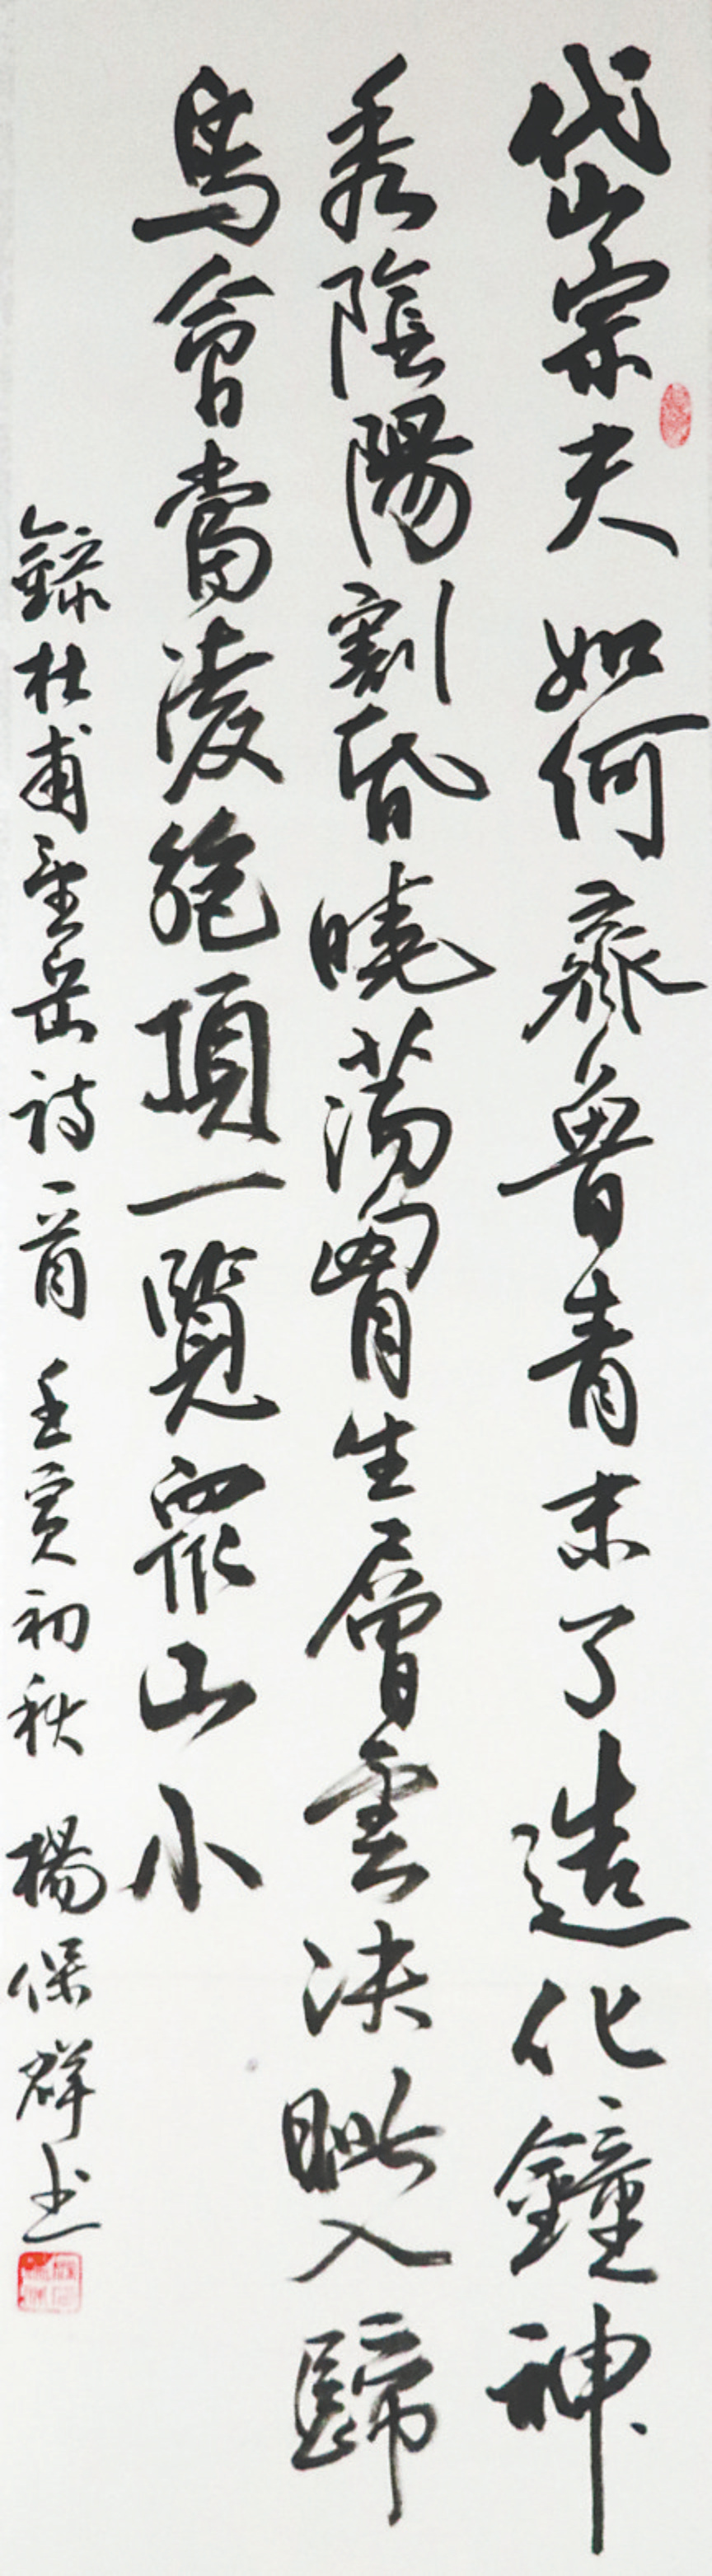 岱宗夫如何齊魯青未了造化鐘神
秀陰陽割昏曉蕩胷生層雲决眦入歸
鳥會當凌絶頂一覽眾山小
録杜甫望岳詩一首 壬寅初秋 楊保群书